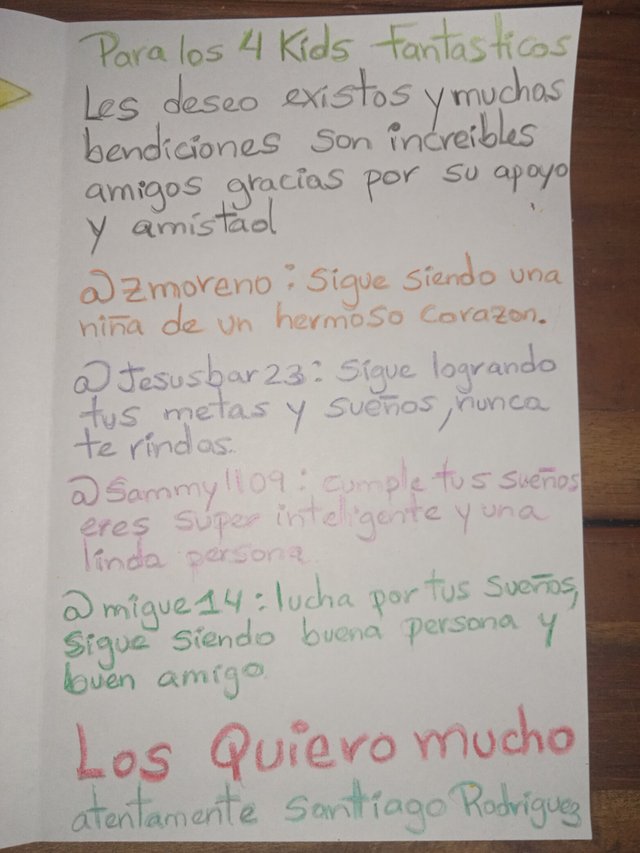 Para los 4 Kids Fantasticos
Les deseo existos y muchas
bendiciones son increibles
amigos gracias por su apoyo
y amistad
@zmoreno: Sigue siendo una
niña de un hermoso corazon.
@Jesusbar23: Sigue logrando
tus metas y sueños, nunca
te rindas.
@Sammy1109: cumple tus sueños
eres super inteligente y una
linda persona
@migue14: lucha por tus sueños,
sigue siendo buena persona y
buen amigo
Los Quiero mucho
atentamente Santiago Rodriguez